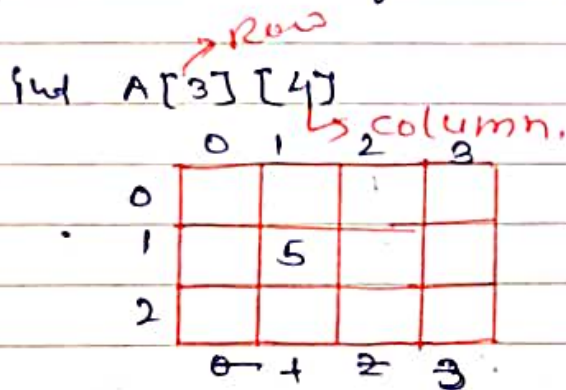 Row
int A[3] [4]
column.
0 1 2 3
0
1 5
2
0 1 2 3